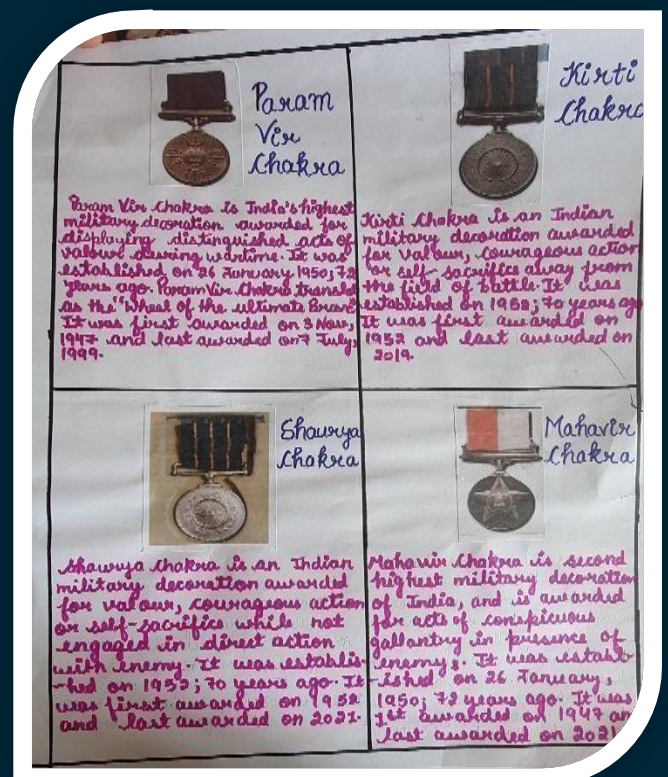 Param
Vir
Chakra
Param Vir Chakra is India's highest
military decoration awarded for
displaying distinguished acts of
valour during wartime. It was
established on 26 January 1950; 72
years ago. Param Vir Chakra translat
as the "Wheel of the ultimate Brave"
It was first awarded on 3 Nov,
1947 and last awarded on 7 July,
1999.
Kirti
Chakra
Kirti Chakra is an Indian
military decoration awarded
for valour, courageous action
or self-sacrifice away from
the field of battle. It was
established on 1952; 70 years ago
It was first awarded on
1952 and last awarded on
2019.
Shaurya
Chakra
Shaurya Chakra is an Indian
military decoration awarded
for valour, courageous action
or self-sacrifice while not
engaged in direct action
with enemy. It was establis-
-hed on 1952; 70 years ago. It
was first awarded on 1952
and last awarded on 2021.
Mahavir
Chakra
Mahavir Chakra is second
highest military decoration
of India, and is awarded
for acts of conspicuous
gallantry in presence of
enemy. It was establ-
-ished on 26 January,
1950; 72 years ago. It was
1st awarded on 1947 an
last awarded on 2021